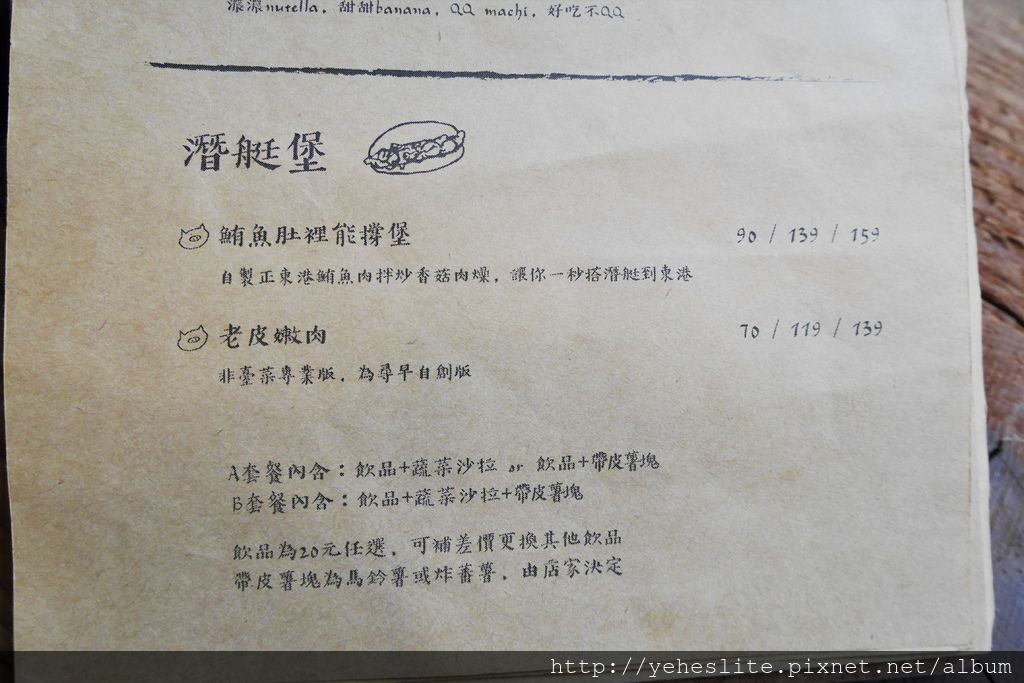 濃濃nutella, 甜甜banana, QQ machi, 好吃不QQ
潛艇堡
鮪魚肚裡能撐堡 90 / 139 / 159
自製正東港鮪魚肉拌炒香菇肉燥, 讓你一秒搭潛艇到東港
老皮嫩肉 70 / 119 / 139
非臺菜專業版, 為尋早自創版
A套餐內含：飲品+蔬菜沙拉 or 飲品+帶皮薯塊
B套餐內含：飲品+蔬菜沙拉+帶皮薯塊
飲品為20元任選, 可補差價更換其他飲品
帶皮薯塊為馬鈴薯或炸蕃薯, 由店家決定
http://yeheslite.pixnet.net/album